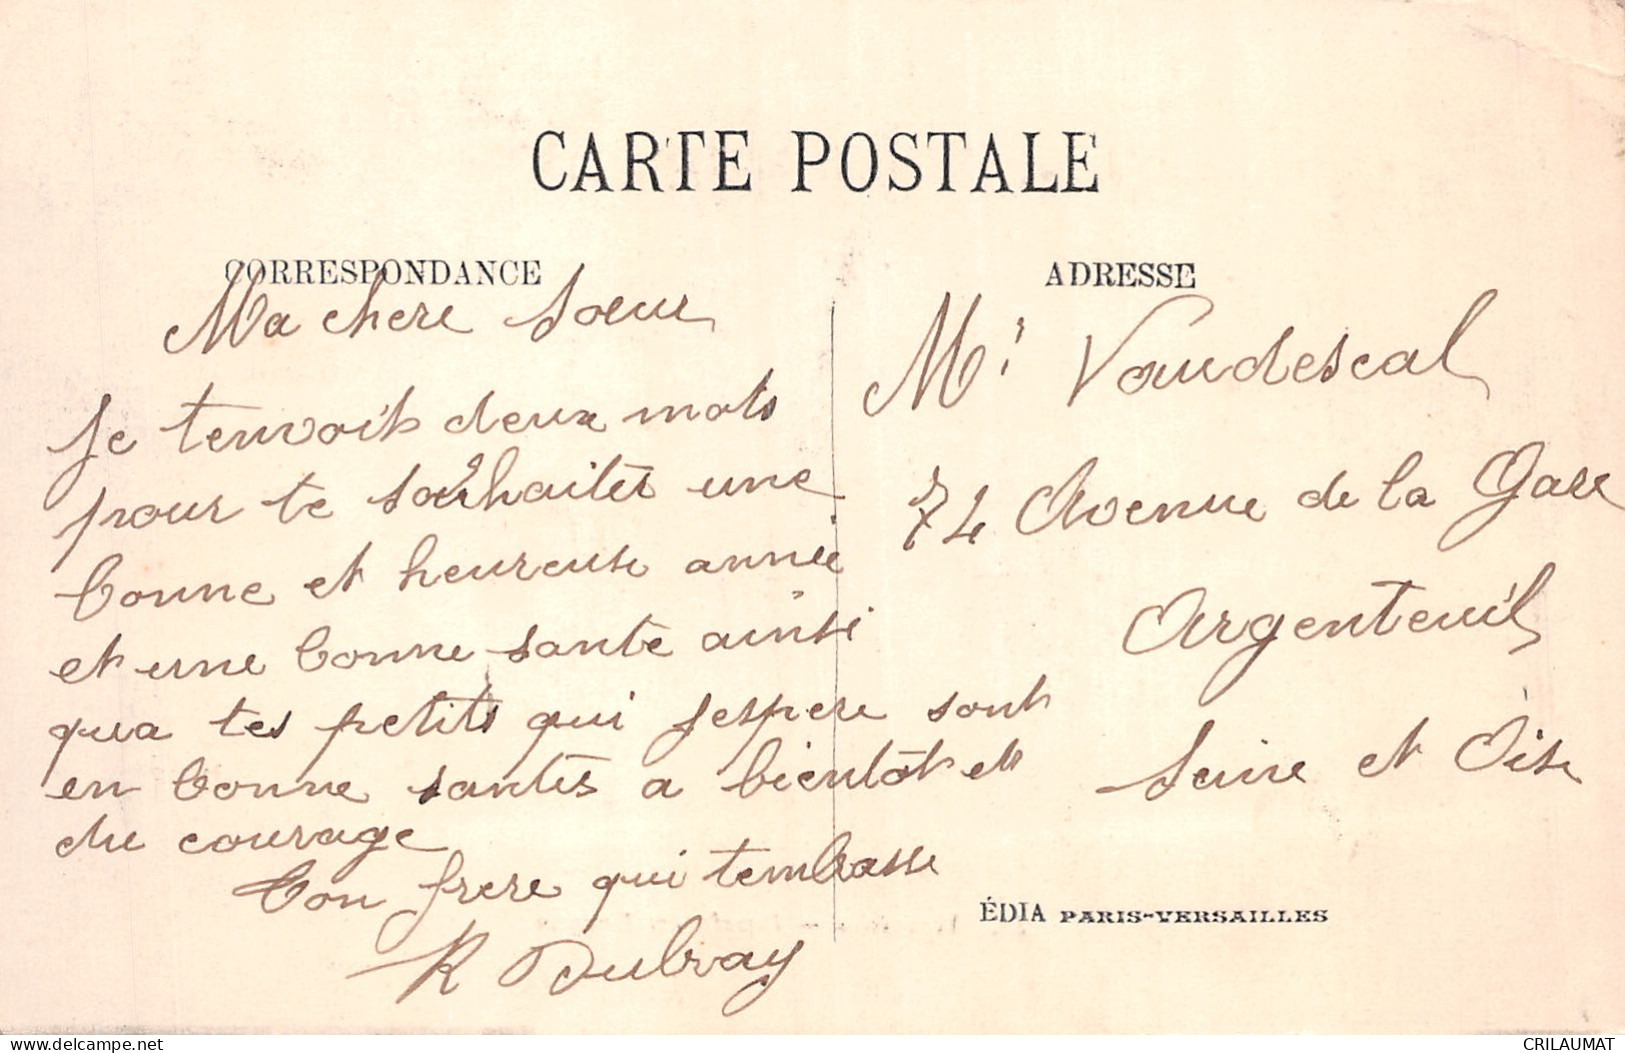 CARTE POSTALE
CORRESPONDANCE
Ma chere Soeur
Je tenvoit deux mots
pour te souhaiter une
bonne et heureuse année
et une bonne sante ainsi
qua tes petits qui jespere sont
en bonne santés a bientôt et
du courage
Ton frere qui tembrasse
R Dubray
ADRESSE
Mr Vaudescal
74 Avenue de la Gare
Argenteuil
Seine et Oise
ÉDIA PARIS-VERSAILLES
www.delcampe.net
CRILAUMAT